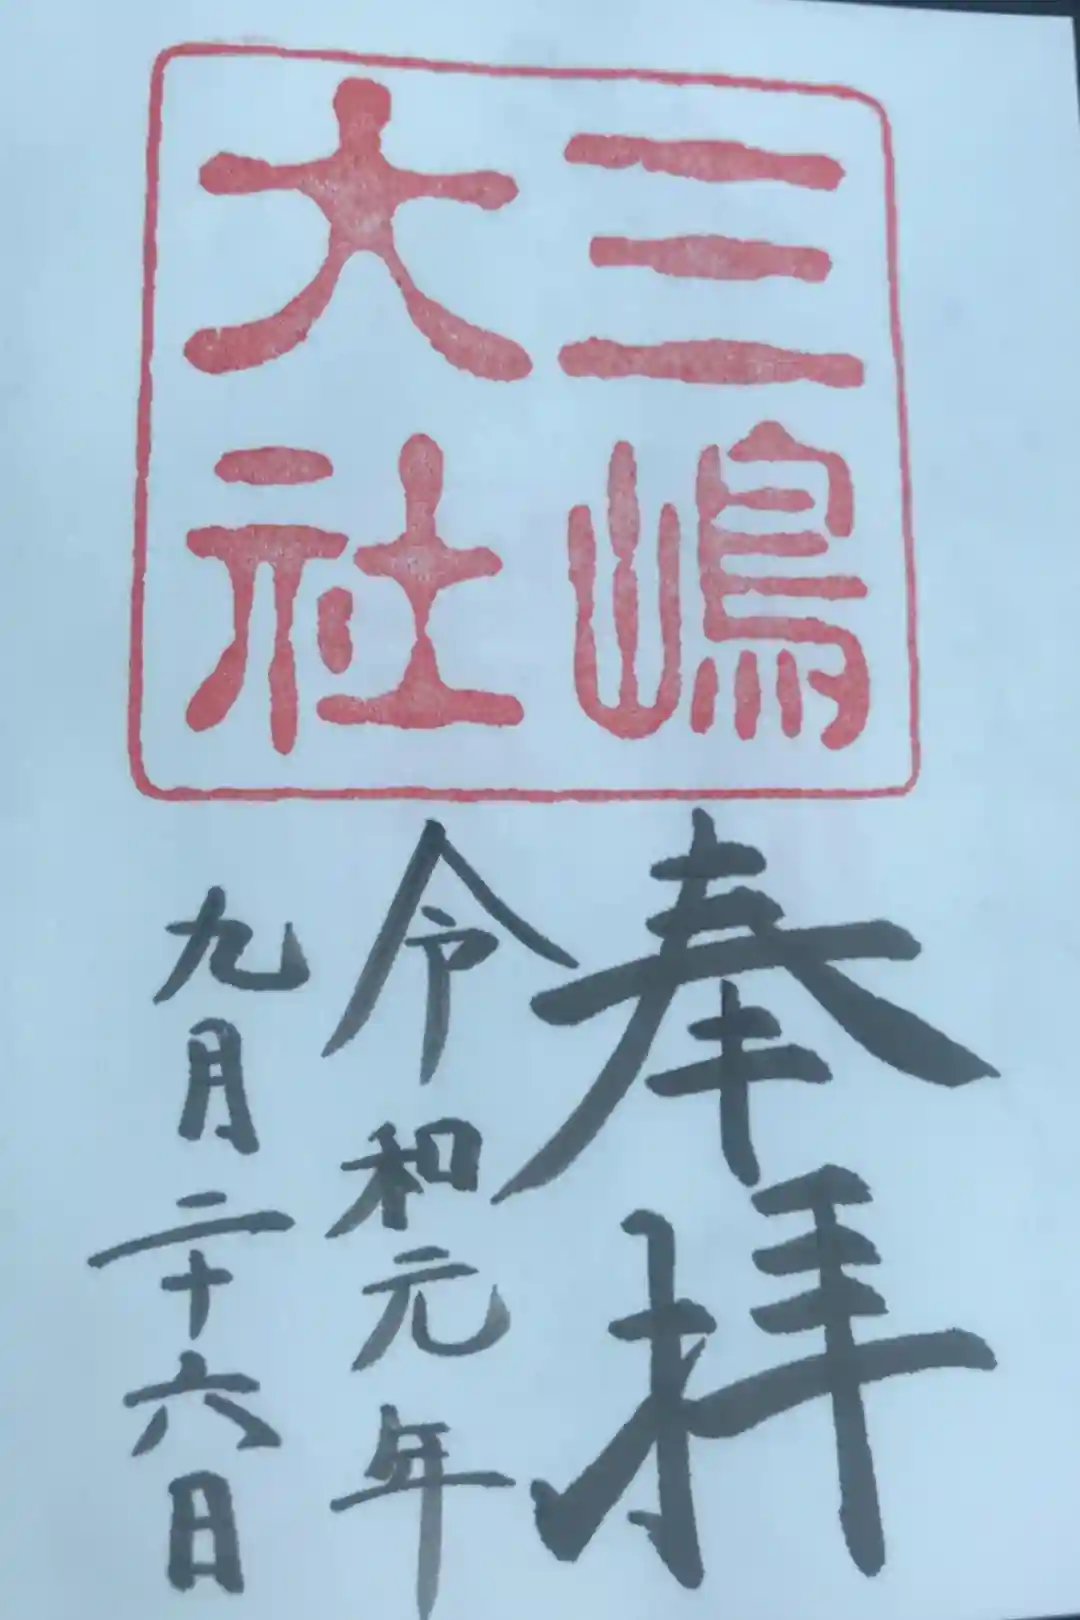 三嶋
大社
奉拝
令和元年
九月二十六日